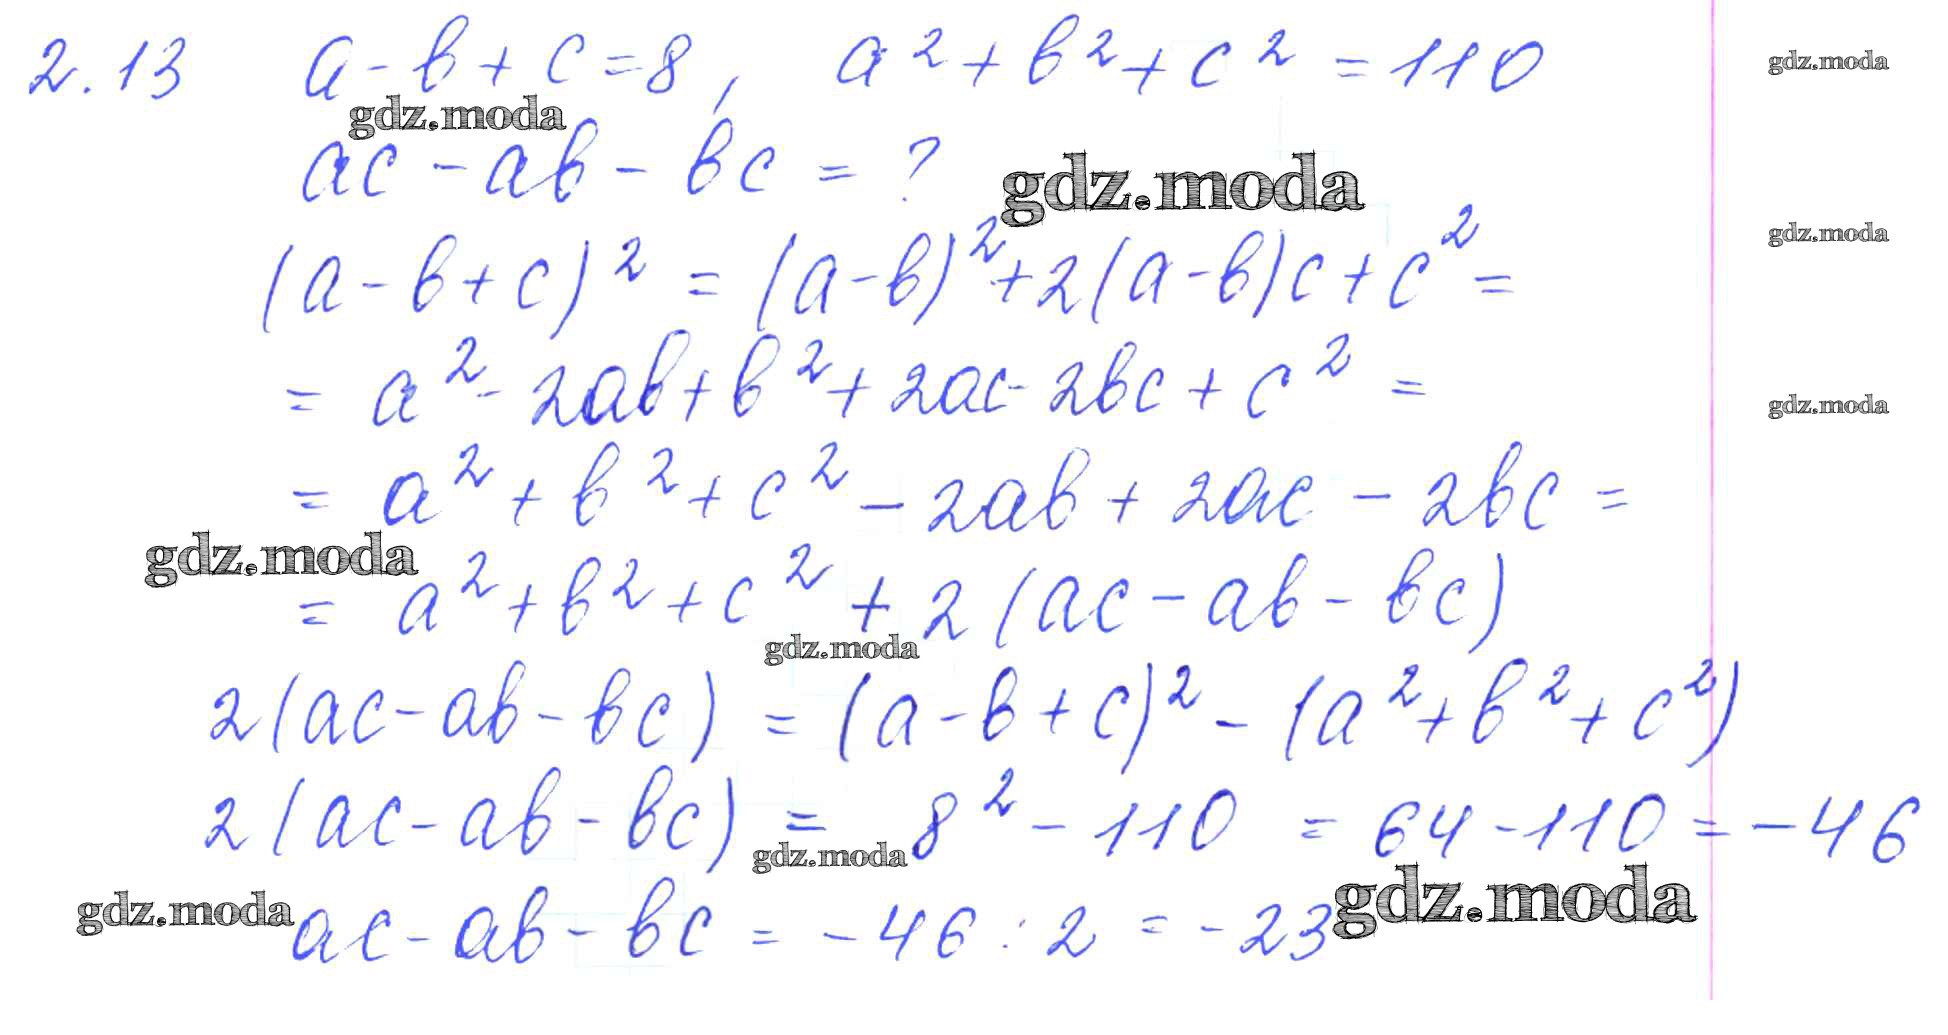 2.13 a - b + c = 8, a² + b² + c² = 110
gdz.moda
gdz.moda
ac - ab - bc = ?
gdz.moda
gdz.moda
(a - b + c)² = (a - b)² + 2(a - b)c + c² =
= a² - 2ab + b² + 2ac - 2bc + c² =
gdz.moda
= a² + b² + c² - 2ab + 2ac - 2bc =
gdz.moda
= a² + b² + c² + 2(ac - ab - bc)
gdz.moda
2(ac - ab - bc) = (a - b + c)² - (a² + b² + c²)
2(ac - ab - bc) = 8² - 110 = 64 - 110 = -46
gdz.moda
gdz.moda
gdz.moda
ac - ab - bc = -46 : 2 = -23